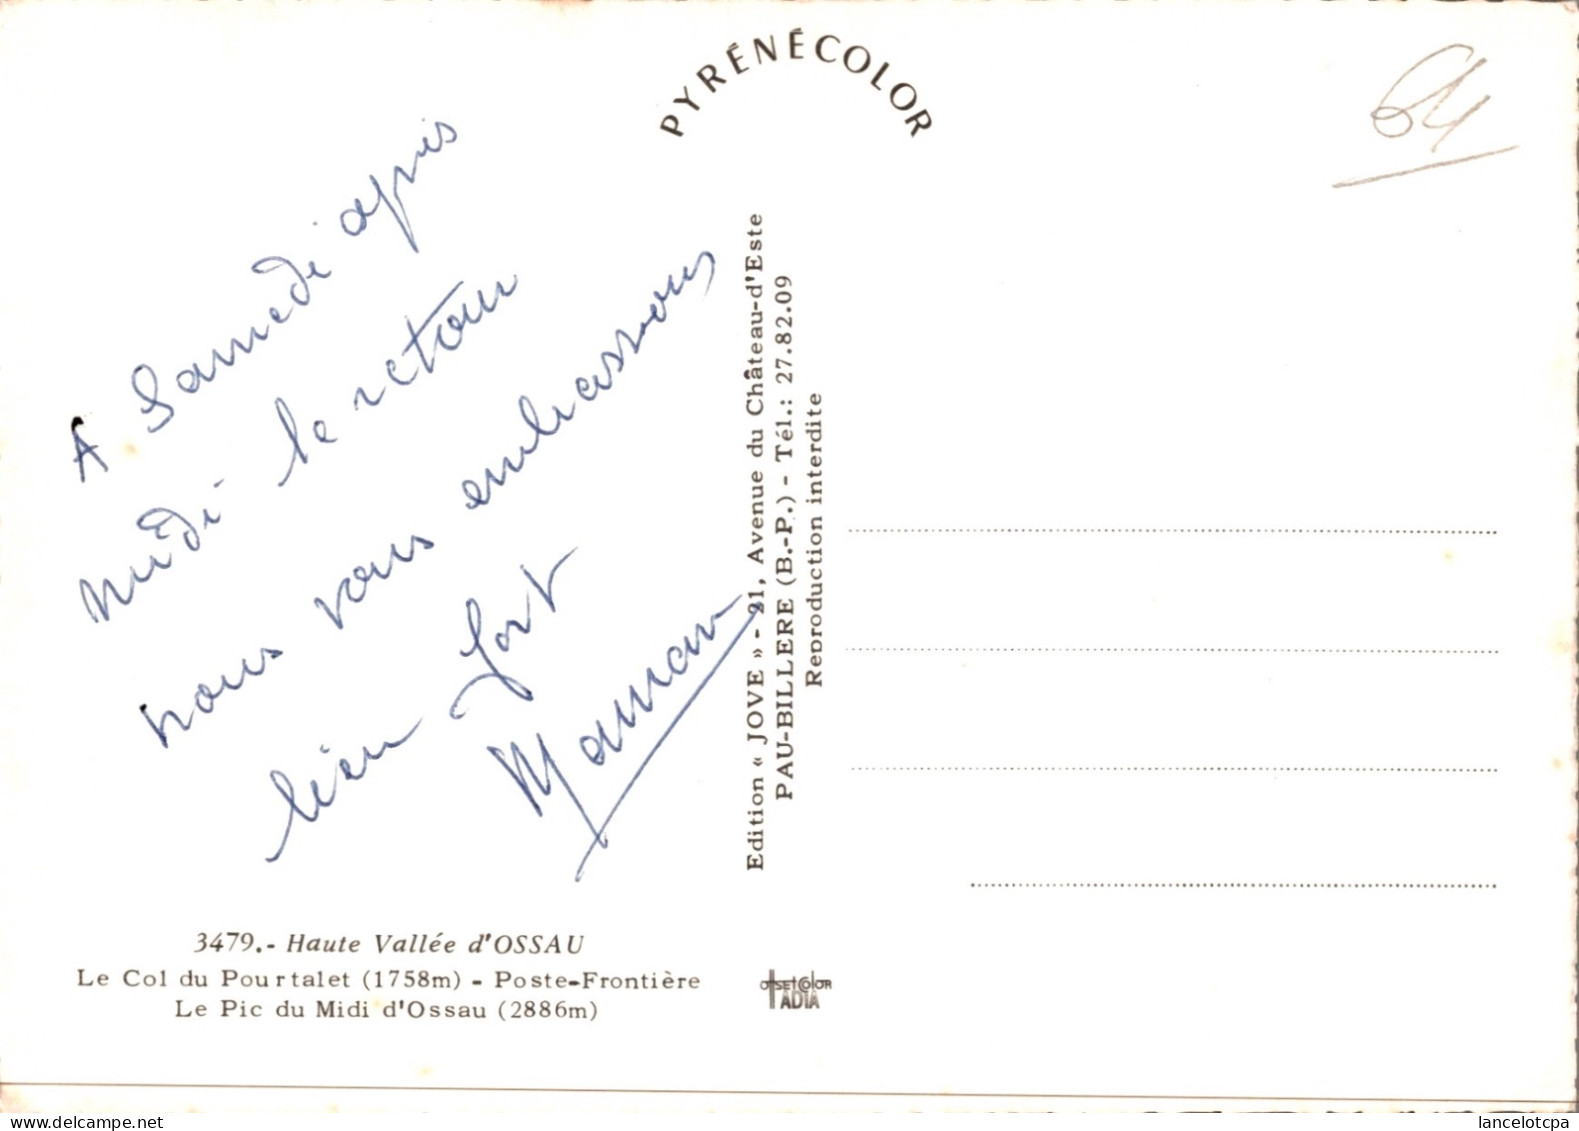 PYRÉNÉCOLOR
64
A Samedi après
midi le retour
nous vous embrassons
bien fort
Maman
Edition « JOVE » - 21, Avenue du Château-d'Este
PAU-BILLERE (B.-P.) - Tél.: 27.82.09
Reproduction interdite
3479.- Haute Vallée d'OSSAU
Le Col du Pourtalet (1758m) - Poste-Frontière
Le Pic du Midi d'Ossau (2886m)
OffSEtColOR
ADIA
lancelotcpa